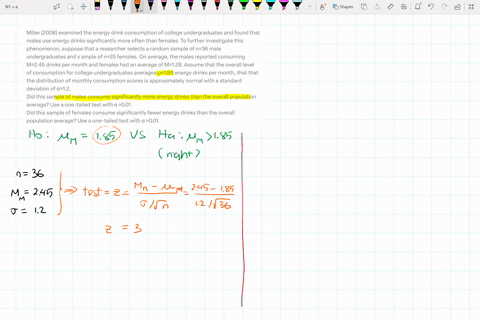 N1 + a
Shapes
Miller (2008) examined the energy drink consumption of college undergraduates and found that
males use energy drinks significantly more often than females. To further investigate this
phenomenon, suppose that a researcher selects a random sample of n=36 male
undergraduates and s ample of n=25 females. On average, the males reported consuming
M=2.45 drinks per month and females had an average of M=1.28. Assume that the overall level
of consumption for college undergraduates averages μ=1.85 energy drinks per month, that that
the distribution of monthly consumption scores is approximately normal with a standard
deviation of σ=1.2.
Did this sample of males consume significantly more energy drinks than the overall population
average? Use a one-tailed test with α =0.01.
Did this sample of females consume significantly fewer energy drinks than the overall
population average? Use a one-tailed test with α =0.01.
Ho: μM = 1.85 VS Ha: μM > 1.85
(right)
n = 36
MM = 2.45
σ = 1.2
⇒ test = z = (Mn - μM)/(σ/√n) = (2.45 - 1.85)/(1.2/√36)
z = 3